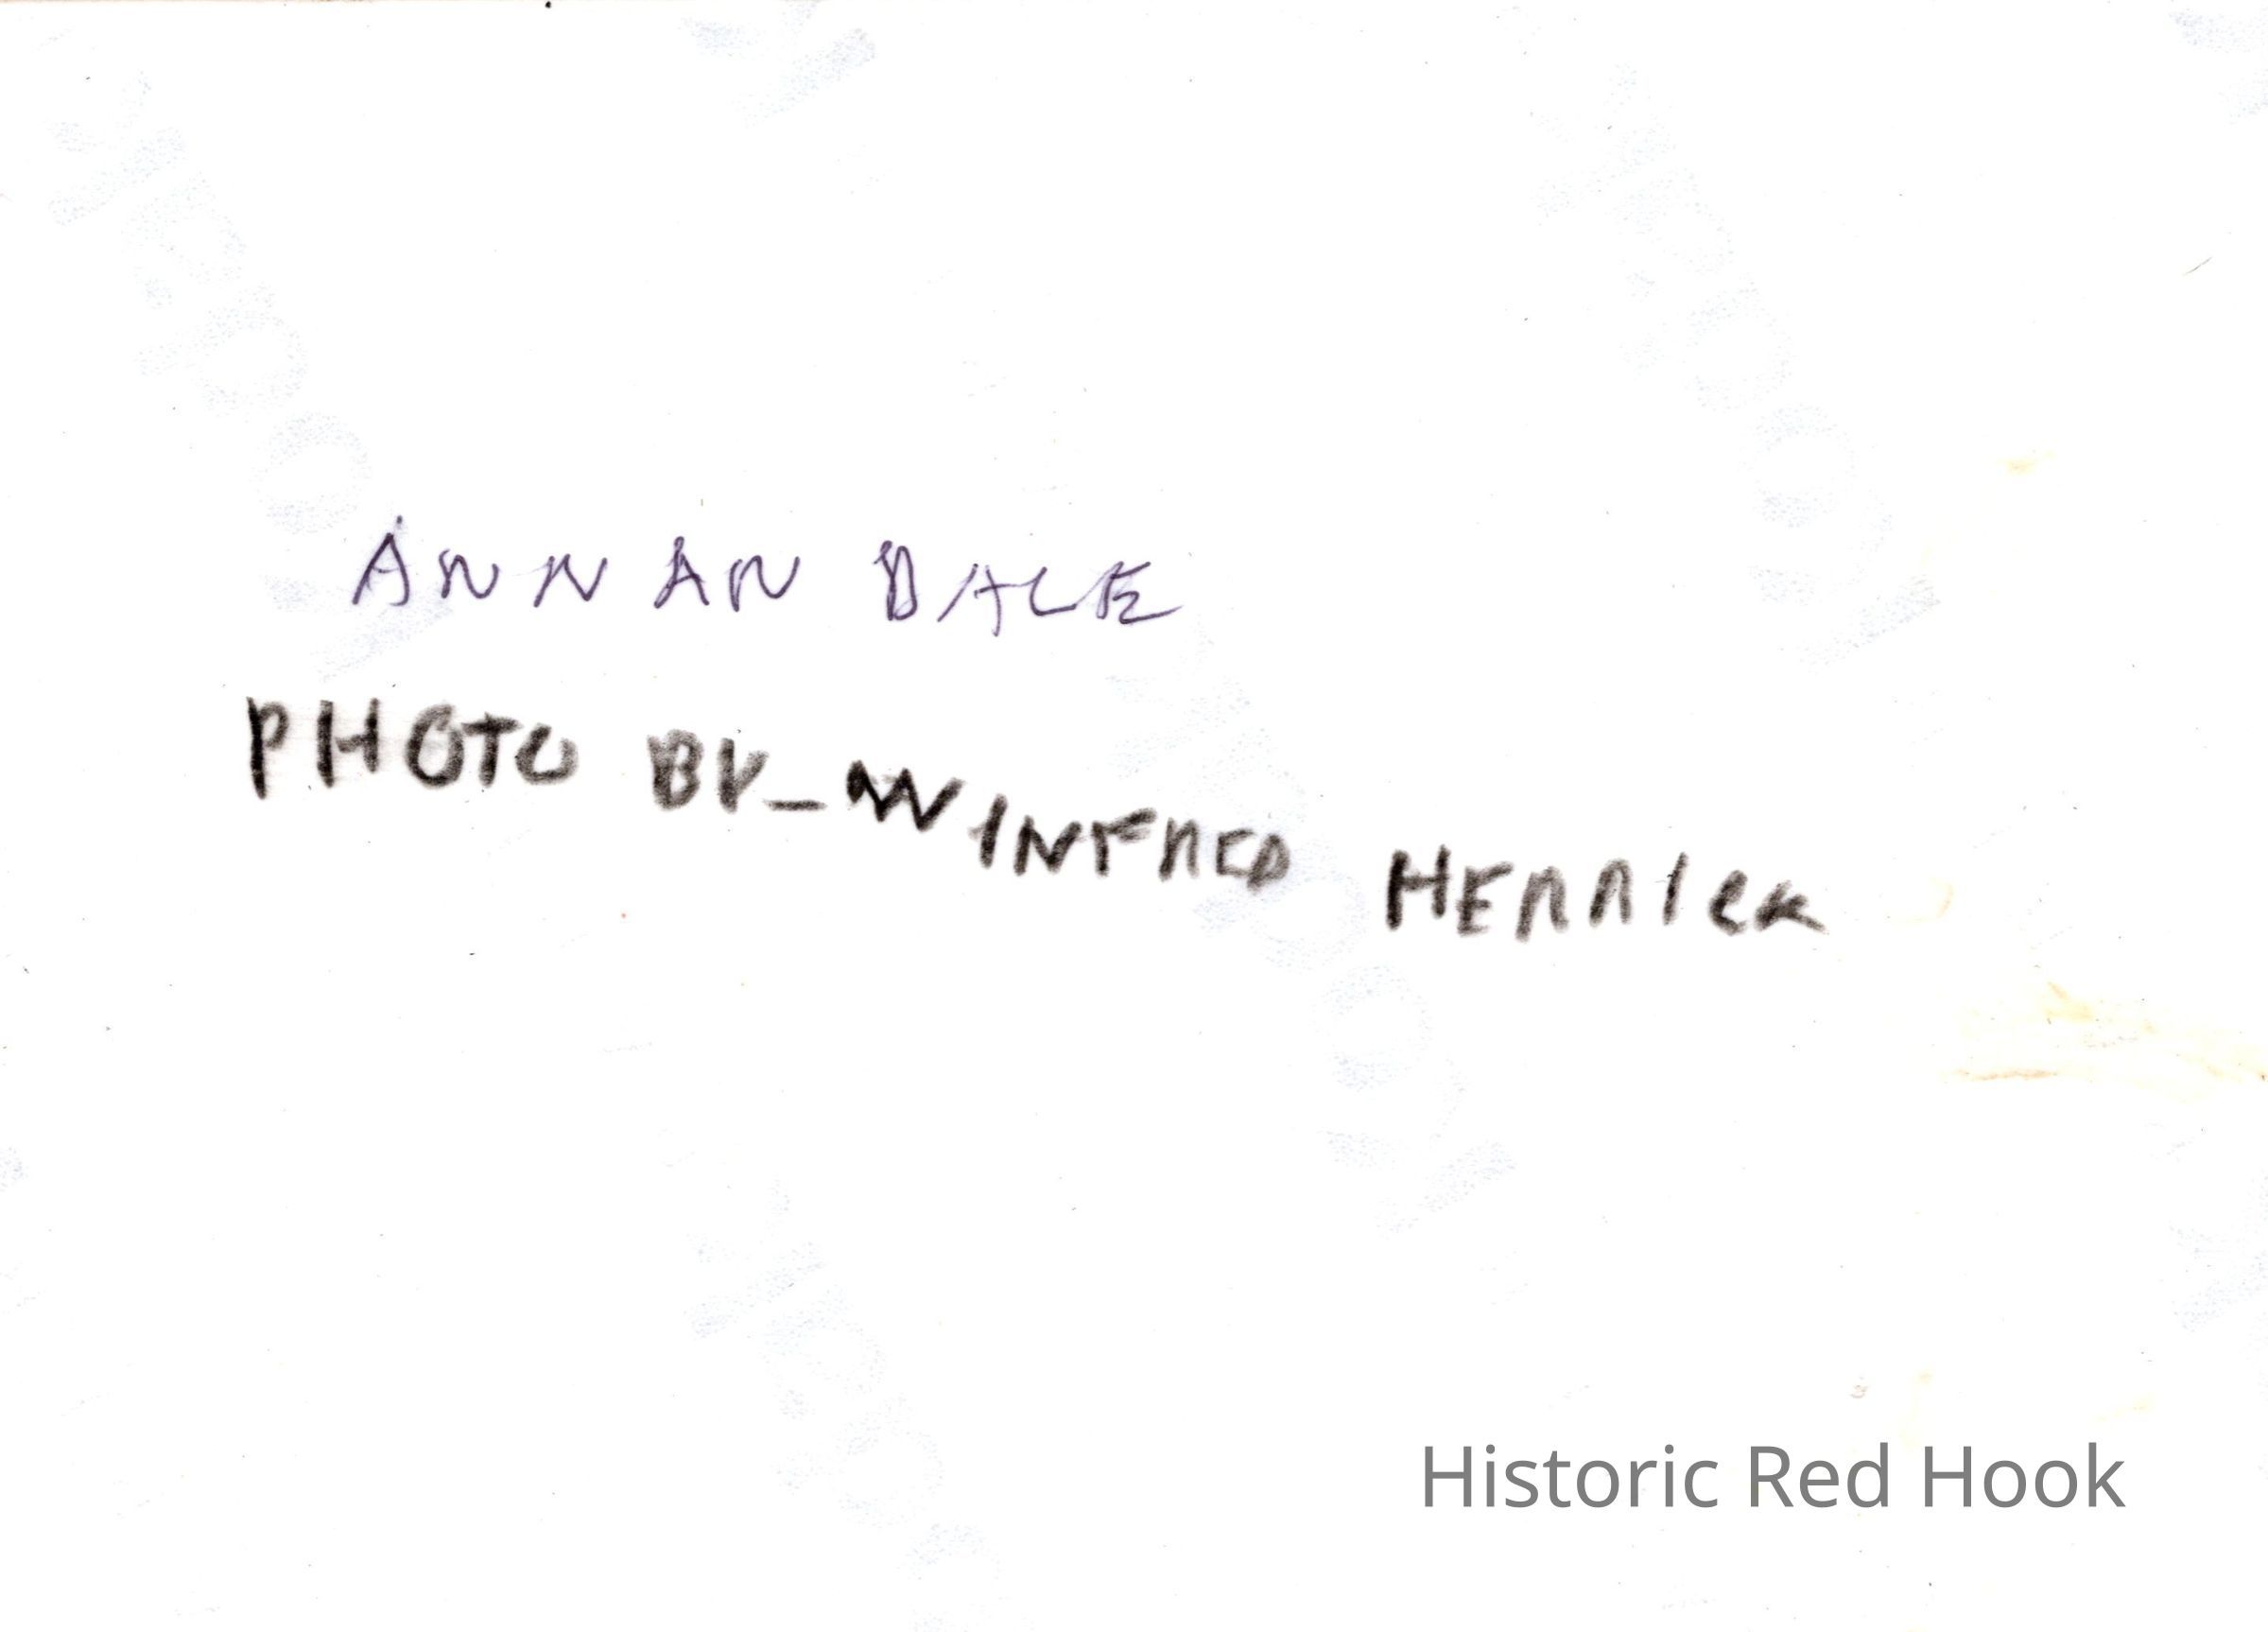 ANNANDALE
PHOTO BY - WINFRED HERRICK
Historic Red Hook